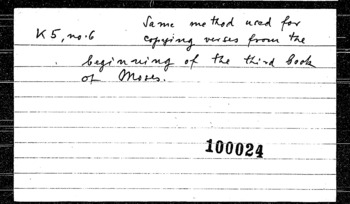 K5, no.6
Same method used for
copying verses from the
beginning of the third book
of Moses.
100024